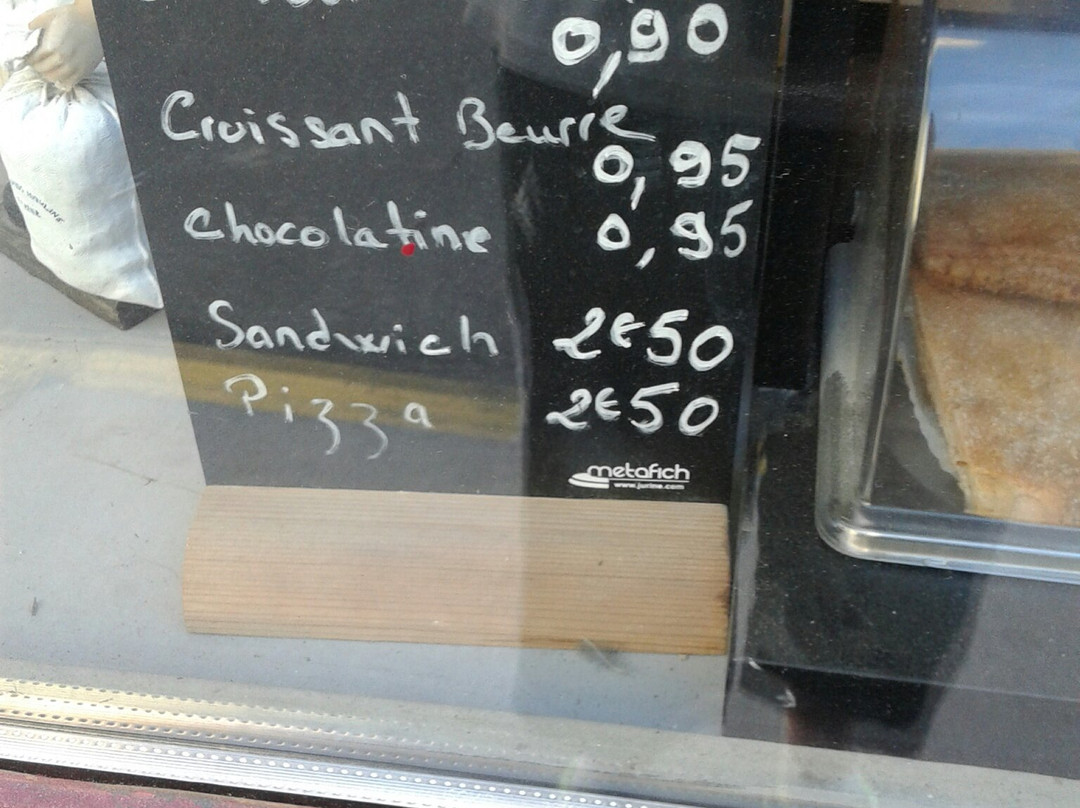 0,90
Croissant Beurre
0,95
Chocolatine 0,95
Sandwich 2€50
Pizza 2€50
metafich
www.jurine.com